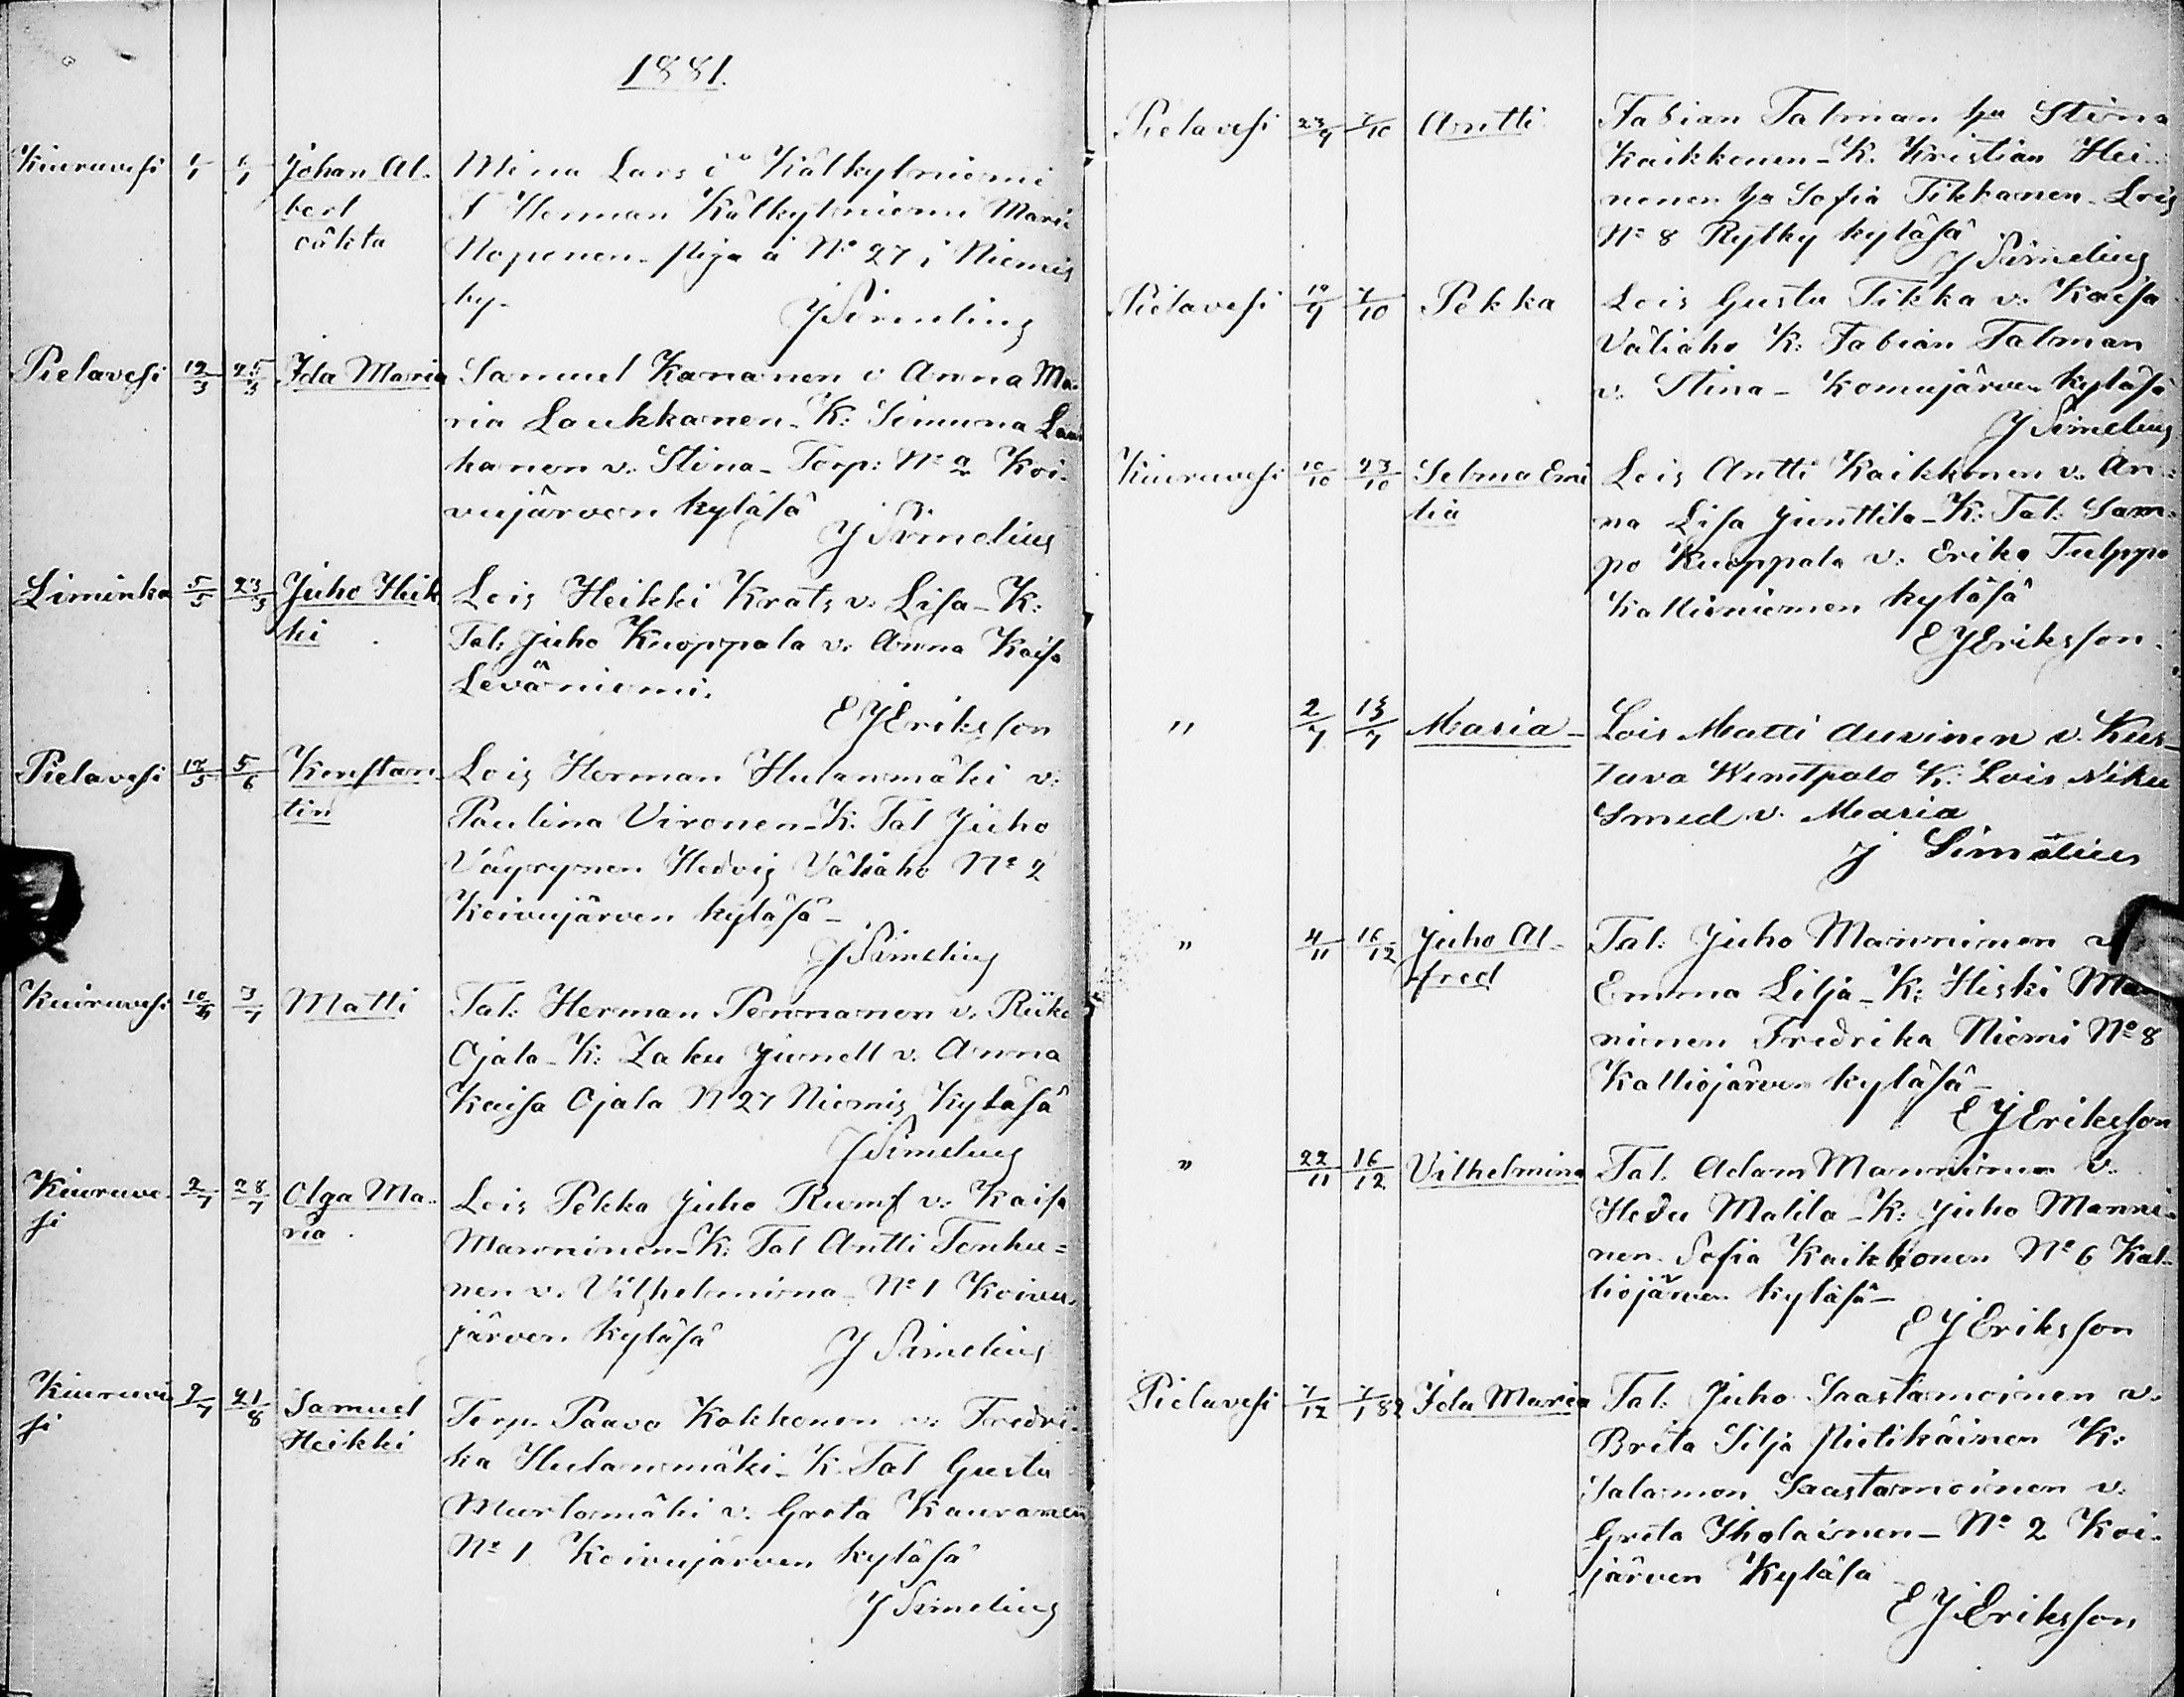 1881.
Kiuruvesi 1/1 6/1 Johan Al- Mina Lars dr Kälkylniemi
bert F Herman Kälkylniemi Maria
oäkta Noponen - piga å No 27 i Niemis
by- J Simelius
Pielavesi 12/3 25/3 Ida Maria Samuel Kananen v Anna Ma-
ria Laukkanen - K: Simuna Lau
kanen v: Stina - Torp: No 2 Koi-
vujärven kyläsä
J Simelius
Liminka 5/5 23/5 Juho Heik Lois Heikki Krats v: Lisa - K:
ki Tal: Juho Kuoppala v: Anna Kaisa
Leväniemi.
E J Eriksson
Pielavesi 17/5 5/6 Konstan- Lois Herman Hutanmäki v:
tin Paulina Vironen - K. Tal Juho
Väyrynen Hedvig Väliaho No 2
Koivujärven kyläsä -
J Simelius
Kiuruvesi 3/7 Matti Tal: Herman Pennanen v: Riika
Ojala - K: Zaku Junell v: Anna
Kaisa Ojala N 27 Niemis kyläsä
J Simelius
Kiuruve- 2/7 28/7 Olga Ma- Lois Pekka Juho Rumf v: Kaisa
si ria Manninen - K: Tal Antti Tenhu=
nen v. Vilhelmiina - No 1 Koivu-
järven kyläsä J Simelius
Kiuruve 21/8 Samuel Torp. Paavo Kokkonen v: Fredri-
si Heikki ka Hutanmäki - K. Tal Gusta
Murtomäki v. Greta Kauranen
No 1 Koivujärven kyläsä
J Simelius
Pielavesi 23/9 7/10 Antti Fabian Talman ja Stina
Kaikkonen - K. Kristian Hei-
nonen ja Sofia Tikkanen - Lois
No 8 Rytky kyläsä
J Simelius
Pielavesi 10/9 7/10 Pekka Lois Gustu Tikka v: Kaisa
Väliaho K: Fabian Talman
v: Stina - Komujärven kyläsä
J Simelius
Kiuruvesi 10/10 23/10 Selma Emi Lois Antti Kaikkonen v: An=
lia na Lisa Junttila - K: Tal: Sam=
po Kuoppala v: Erika Tulppo
Kallioniemen kyläsä
E J Eriksson.
" 2/7 13/7 Maria - Lois Matti Auvinen v. Kus-
tava Wentpalo K: Lois Niku
Smed v. Maria
J Simelius
" 4/11 16/12 Juho Al- Tal: Juho Manninen v
fred Emma Lilja - K: Hiski Man
ninen Fredrika Niemi No 8
Kalliojärven kyläsä -
E J Eriksson
" 22/11 16/12 Vilhelmina Tal. Adam Manninen v:
Hedu Malila - K: Juho Manni-
nen - Sofia Kaikkonen No 6 Kal-
liojärven kyläsä -
E J Eriksson
Pielavesi 7/12 7/1 82 Ida Maria Tal: Juho Saastamoinen v.
Brita Silja Piitikäinen K:
Salamon Saastamoinen v.
Greta Iholainen - No 2 Koi-
järven kyläsä
E J Eriksson